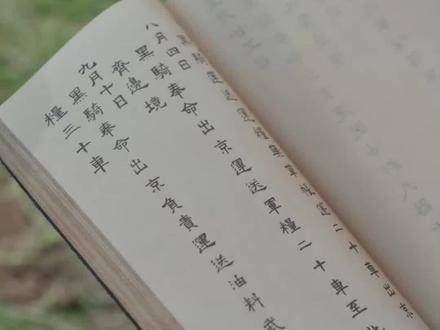 八月四日
黑騎奉命出京運送軍糧二十車至
齊邊境
九月十日
黑騎奉命出京負責運送油料武
糧三十車